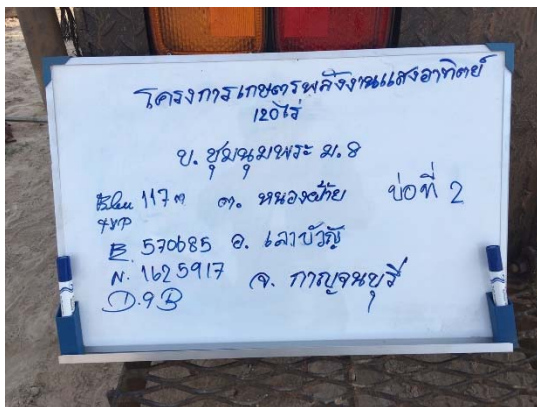 โครงการเกษตรพลังงานแสงอาทิตย์
120ไร่
บ. ชุมนุมพระ ม.8
117 ต. หนองฝ้าย บ่อที่ 2
E. 570685 อ. เลาขวัญ
N. 1625917 จ. กาญจนบุรี